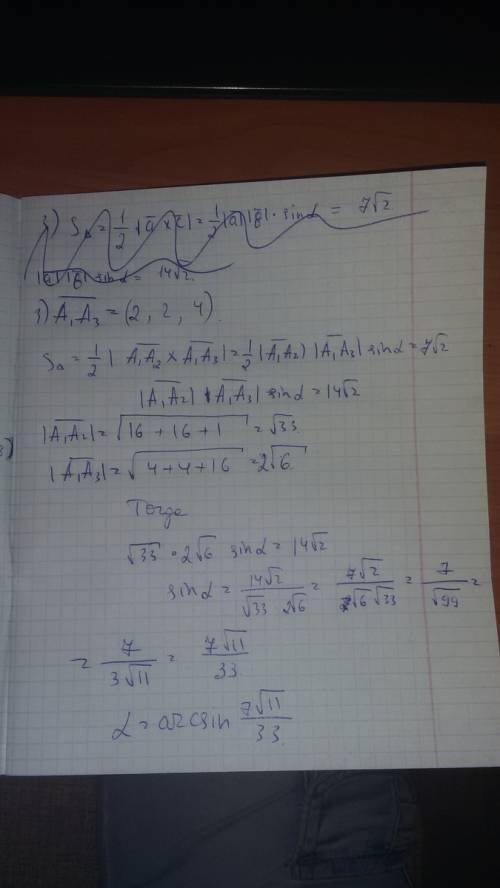 3) S_Δ = 1/2 |a̅ × c̅| = 1/2 |a̅| |b̅| · sin α = 7√2
|a̅| |b̅| sin α = 14√2.
3) A₁A₃ = (2, 2, 4).
S_Δ = 1/2 | A₁A₂ × A₁A₃| = 1/2 |A₁A₂| |A₁A₃| sin α = 7√2
|A₁A₂| |A₁A₃| sin α = 14√2
|A₁A₂| = √(16 + 16 + 1) = √33
|A₁A₃| = √(4 + 4 + 16) = 2√6.
Тогда
√33 · 2√6 sin α = 14√2
sin α = 14√2 / (√33 2√6) = 7√2 / (√6 √33) = 7 / √99 =
= 7 / (3√11) = 7√11 / 33
α = arcsin 7√11 / 33.